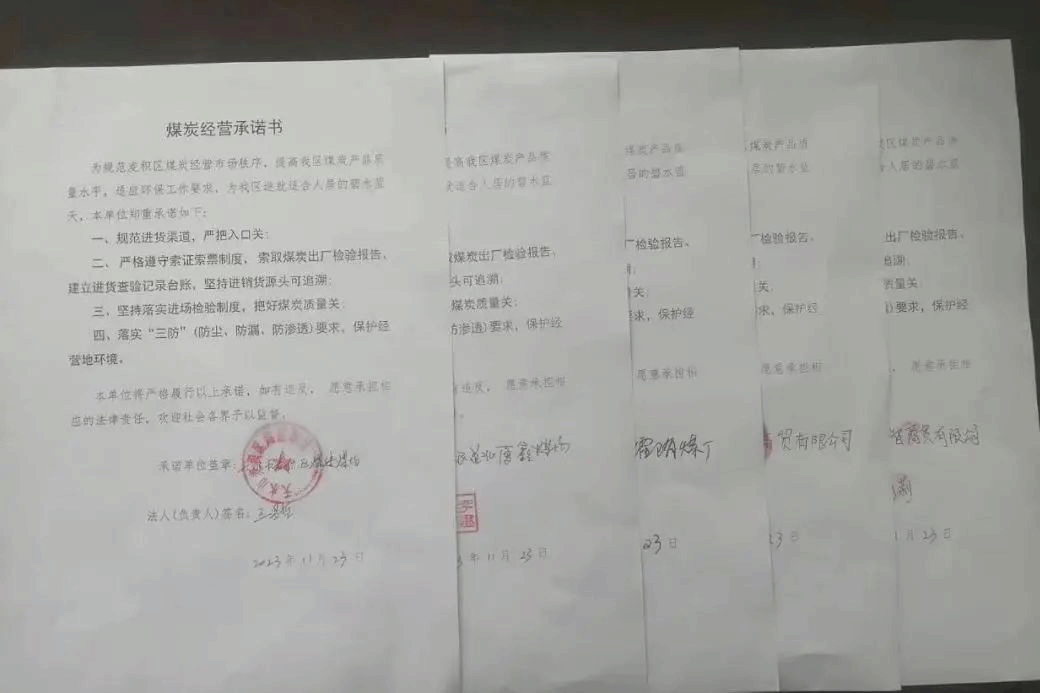 煤炭经营承诺书
为规范麦积区煤炭经营市场秩序，提高我区煤炭产品质
量水平，适应环保工作要求，为我区造就适合人居的碧水蓝
天，本单位郑重承诺如下：
一、规范进货渠道，严把入口关；
二、严格遵守索证索票制度，索取煤炭出厂检验报告、
建立进货查验记录台账，坚持进销货源头可追溯；
三、坚持落实进场检验制度，把好煤炭质量关；
四、落实“三防”（防尘、防漏、防渗透）要求，保护经
营地环境。
本单位将严格履行以上承诺，如有违反，愿意承担相
应的法律责任，欢迎社会各界予以监督。
承诺单位签章：
法人（负责人）签名：
2023年11月23日
提高我区煤炭产品质
就适合人居的碧水蓝
取煤炭出厂检验报告、
头可追溯；
煤炭质量关；
防渗透）要求，保护经
有违反，愿意承担相
煤场
3年11月23日
煤炭产品质
居的碧水蓝
厂检验报告、
关；
要求，保护经
愿意承担相
煤厂
23日
煤炭产品质
居的碧水蓝
厂检验报告、
关；
求，保护经
愿意承担相
商贸有限公司
23日
我区煤炭产品质
合人居的碧水蓝
出厂检验报告、
追溯；
质量关；
）要求，保护经
，愿意承担相
商贸有限公司
1月23日